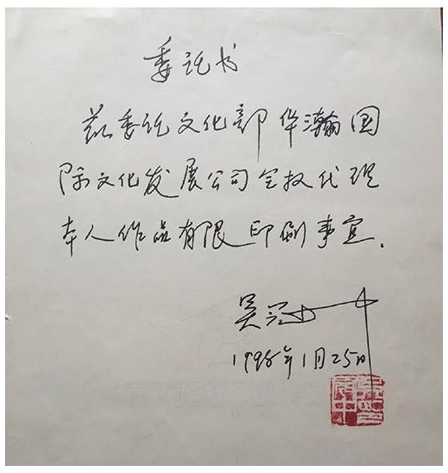 委托书
兹委托文化部华瀚国
际文化发展公司全权代理
本人作品有限印刷事宜.
吴冠中
1998年1月25日